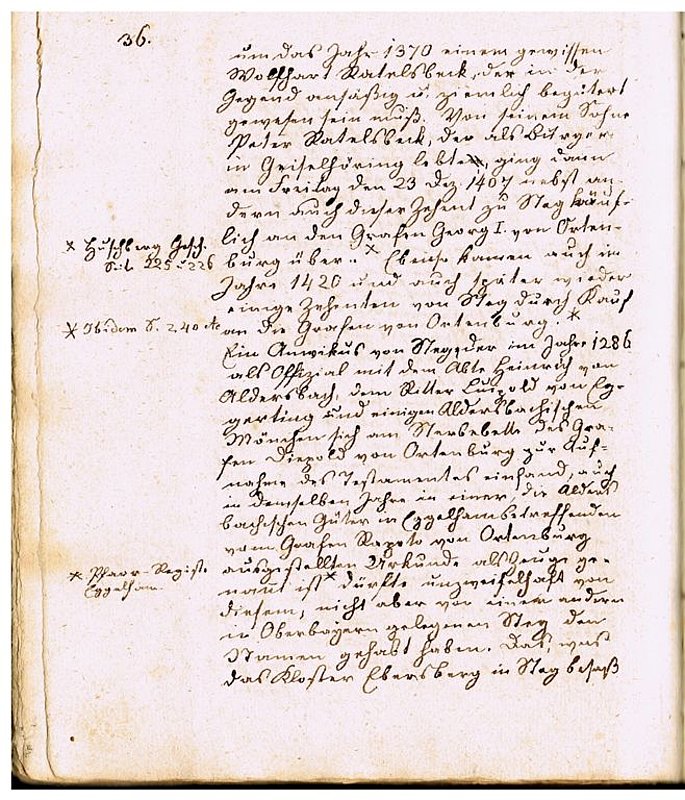 36.
um das Jahr 1370 einem gewissen
Wolfhart Ratelsbeck, der in der
Gegend ansäßig u. ziemlich begütert
gewesen sein muß. Von seinem Sohne
Peter Ratelsbeck, der als Bürger
in Geiselhöring lebte, ging dann
am Freitag den 23 Dez. 1407 nebst an-
dern auch dieser Zehent zu Steg käuf-
lich an den Grafen Georg I. von Orten-
burg über. * Ebenso kamen auch im
Jahre 1420 und auch später wieder
einige Zehenten von Steg durch Kauf
an die Grafen von Ortenburg. *
* Huschberg Gesch.
Seit. 225 u 226
* Ibidem S. 240
Ein Amwikus von Steg, der im Jahre 1286
als Offizial mit dem Abte Heinrich von
Aldersbach, dem Ritter Luipold von Eg-
gerting und einigen Aldersbachischen
Mönchen sich am Sterbebette des Gra-
fen Diepold von Ortenburg zur Auf-
nahme des Testamentes einfand, auch
in demselben Jahre in einer, die Alders
bachischen Güter in Eggelham betreffenden
vom Grafen Rapoto von Ortenburg
ausgestellten Urkunde als Zeuge ge-
nannt ist * dürfte unzweifelhaft von
diesem, nicht aber von einem andern
in Oberbayern gelegenen Steg den
Namen gehabt haben. Das, was
das Kloster Ebersberg in Steg besaß
* Pfarr-Regist.
Eggelham.